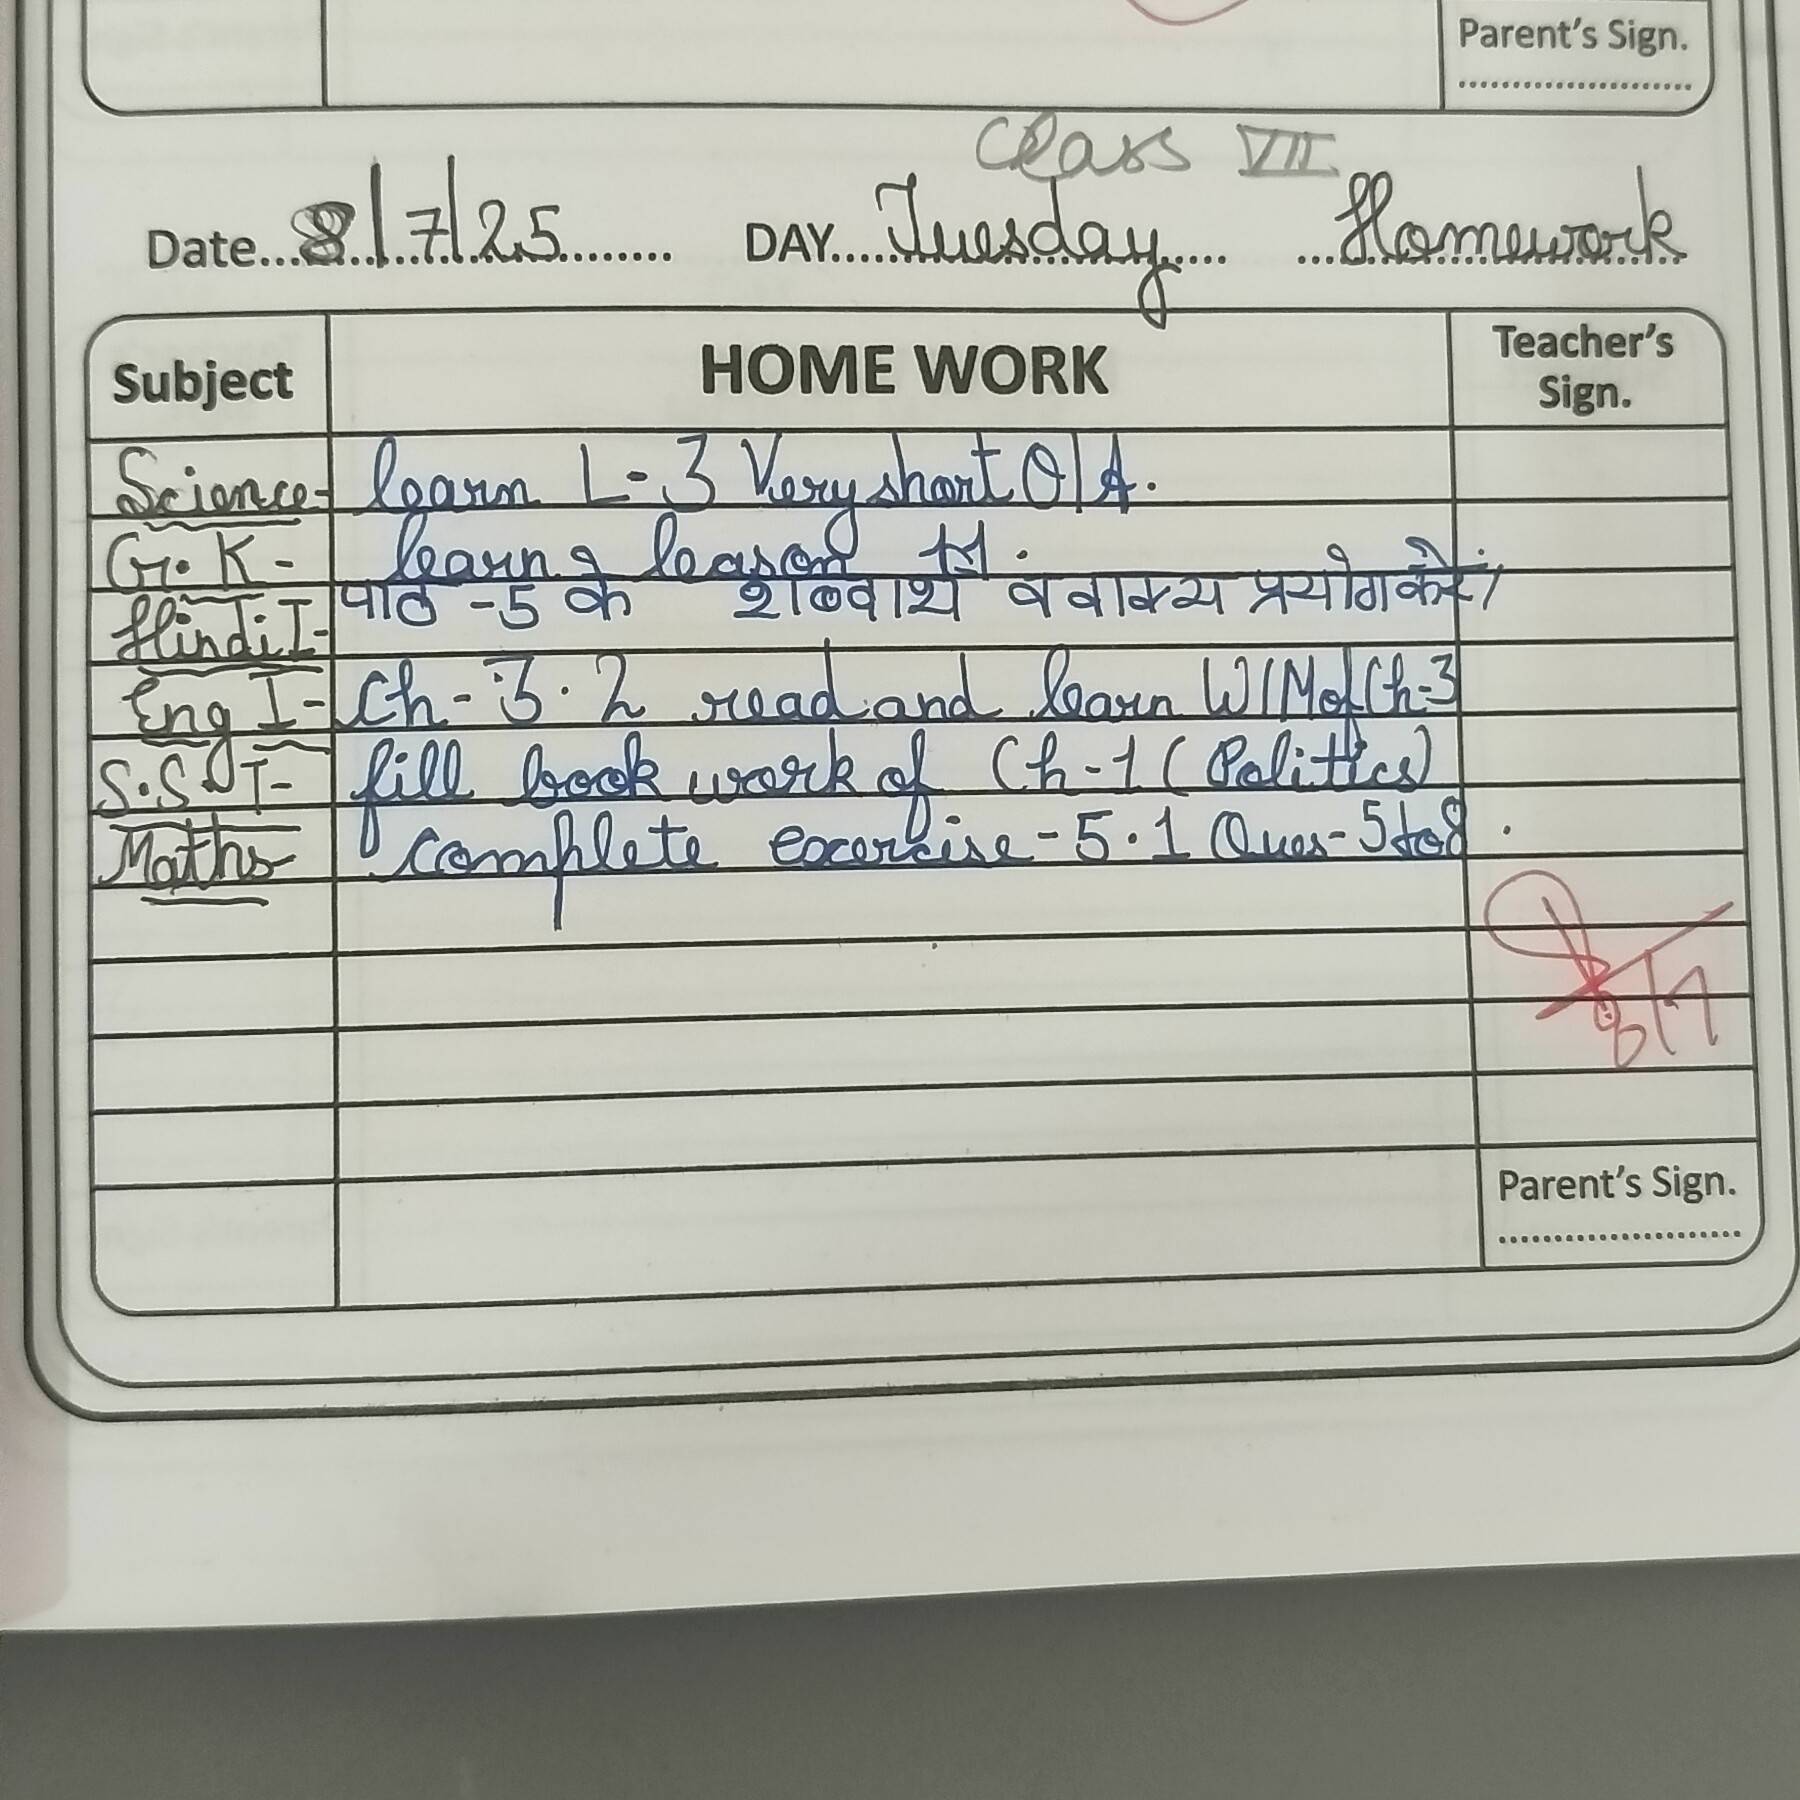 Parent's Sign.
Class VII
Date... 8/7/25 ... DAY... Tuesday ... Homework
Subject HOME WORK Teacher's Sign.
Science- learn L-3 Very short Q/A.
G.K- learn lesson .
Hindi I- पाठ -5 के शब्दार्थ व वाक्य प्रयोग करें।
Eng I- Ch-3.2 read and learn W/M of Ch-3
S.S.T- fill book work of Ch-1 (Politics)
Maths- complete excercise-5.1 Ques-5 to 8.
8/7
Parent's Sign.